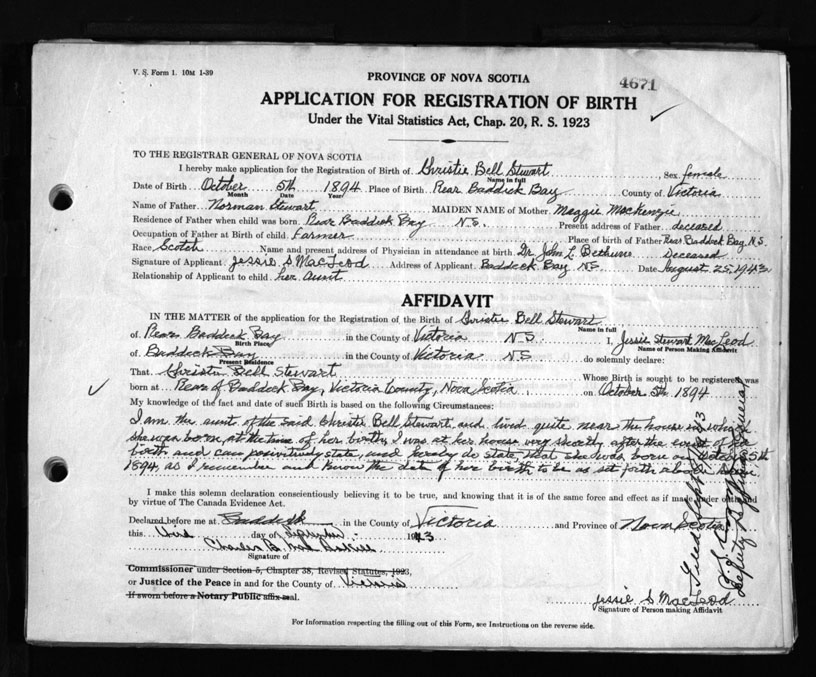 V. S. Form 1. 10M 1-39
4671
PROVINCE OF NOVA SCOTIA
APPLICATION FOR REGISTRATION OF BIRTH
Under the Vital Statistics Act, Chap. 20, R. S. 1923
TO THE REGISTRAR GENERAL OF NOVA SCOTIA
I hereby make application for the Registration of Birth of Christie Bell Stewart Sex female
Name in full
Date of Birth October 5th 1894 Place of Birth Rear Baddeck Bay County of Victoria
Month Date Year
Name of Father Norman Stewart MAIDEN NAME of Mother Maggie MacKenzie
Residence of Father when child was born Rear Baddeck Bay N.S. Present address of Father deceased
Occupation of Father at Birth of child Farmer Place of birth of Father Rear Baddeck Bay N.S.
Race Scotch Name and present address of Physician in attendance at birth Dr John L. Bethune Deceased
Signature of Applicant Jessie S MacLeod Address of Applicant Baddeck Bay NS Date August 25, 1943
Relationship of Applicant to child her Aunt
AFFIDAVIT
IN THE MATTER of the application for the Registration of the Birth of Christie Bell Stewart
Name in full
of Rear Baddeck Bay in the County of Victoria N S I, Jessie Stewart MacLeod
Birth Place Name of Person Making Affidavit
of Baddeck Bay in the County of Victoria N S do solemnly declare:
Present Residence
That Christie Bell Stewart Whose Birth is sought to be registered was
born at Rear of Baddeck Bay, Victoria County, Nova Scotia on October 5th 1894
My knowledge of the fact and date of such Birth is based on the following Circumstances:
I am the aunt of the said Christie Bell Stewart and lived quite near the house in which
she was born, at the time of her birth, I was at her house very shortly after the event of her
birth and can positively state, and hereby do state, that she was born on October 5th
1894, as I remember and know the date of her birth to be as set forth above
I make this solemn declaration conscientiously believing it to be true, and knowing that it is of the same force and effect as if made under oath and
by virtue of The Canada Evidence Act.
Declared before me at Baddeck in the County of Victoria and Province of Nova Scotia
this third day of September 1943
Charles B.
Signature of
Commissioner under Section 5, Chapter 38, Revised Statutes, 1923,
or Justice of the Peace in and for the County of Victoria
If sworn before a Notary Public affix seal.
Jessie S MacLeod
Signature of Person making Affidavit
For Information respecting the filling out of this Form, see Instructions on the reverse side.
Deputy